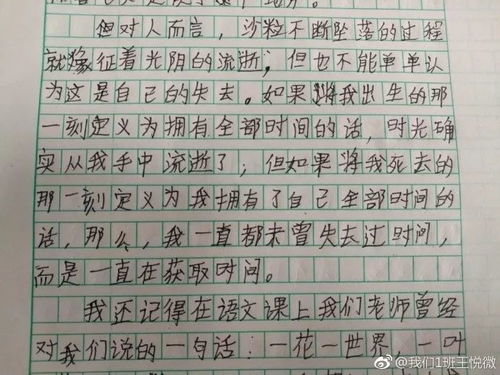 但对人而言，沙粒不断坠落的过程
就象征着光阴的流逝；但也不能单单认
为这是自己的失去。如果将我出生的那
一刻定义为拥有全部时间的话，时光确
实从我手中流逝了；但如果将我死去的
那一刻定义为我拥有了自己全部时间的
话，那么，我一直都未曾失去过时间，
而是一直在获取时间。
我还记得在语文课上我们老师曾经
对我们说的一句话：一花一世界，一叶
@我们1班王悦微